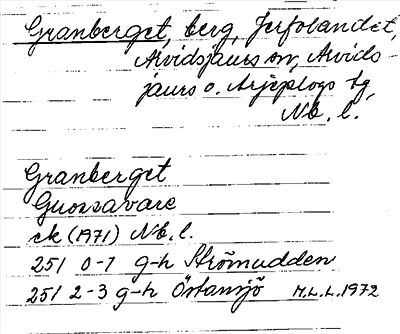 Granberget, berg, Jerfolandet,
Arvidsjaurs sn, Arvids
jaurs o. Arjeplogs tg,
Nb. l.
Granberget
Guossavare
ek (1971) Nb. l.
25I 0-1 g-h Strömudden
25I 2-3 g-h Östansjö M.L.L. 1972